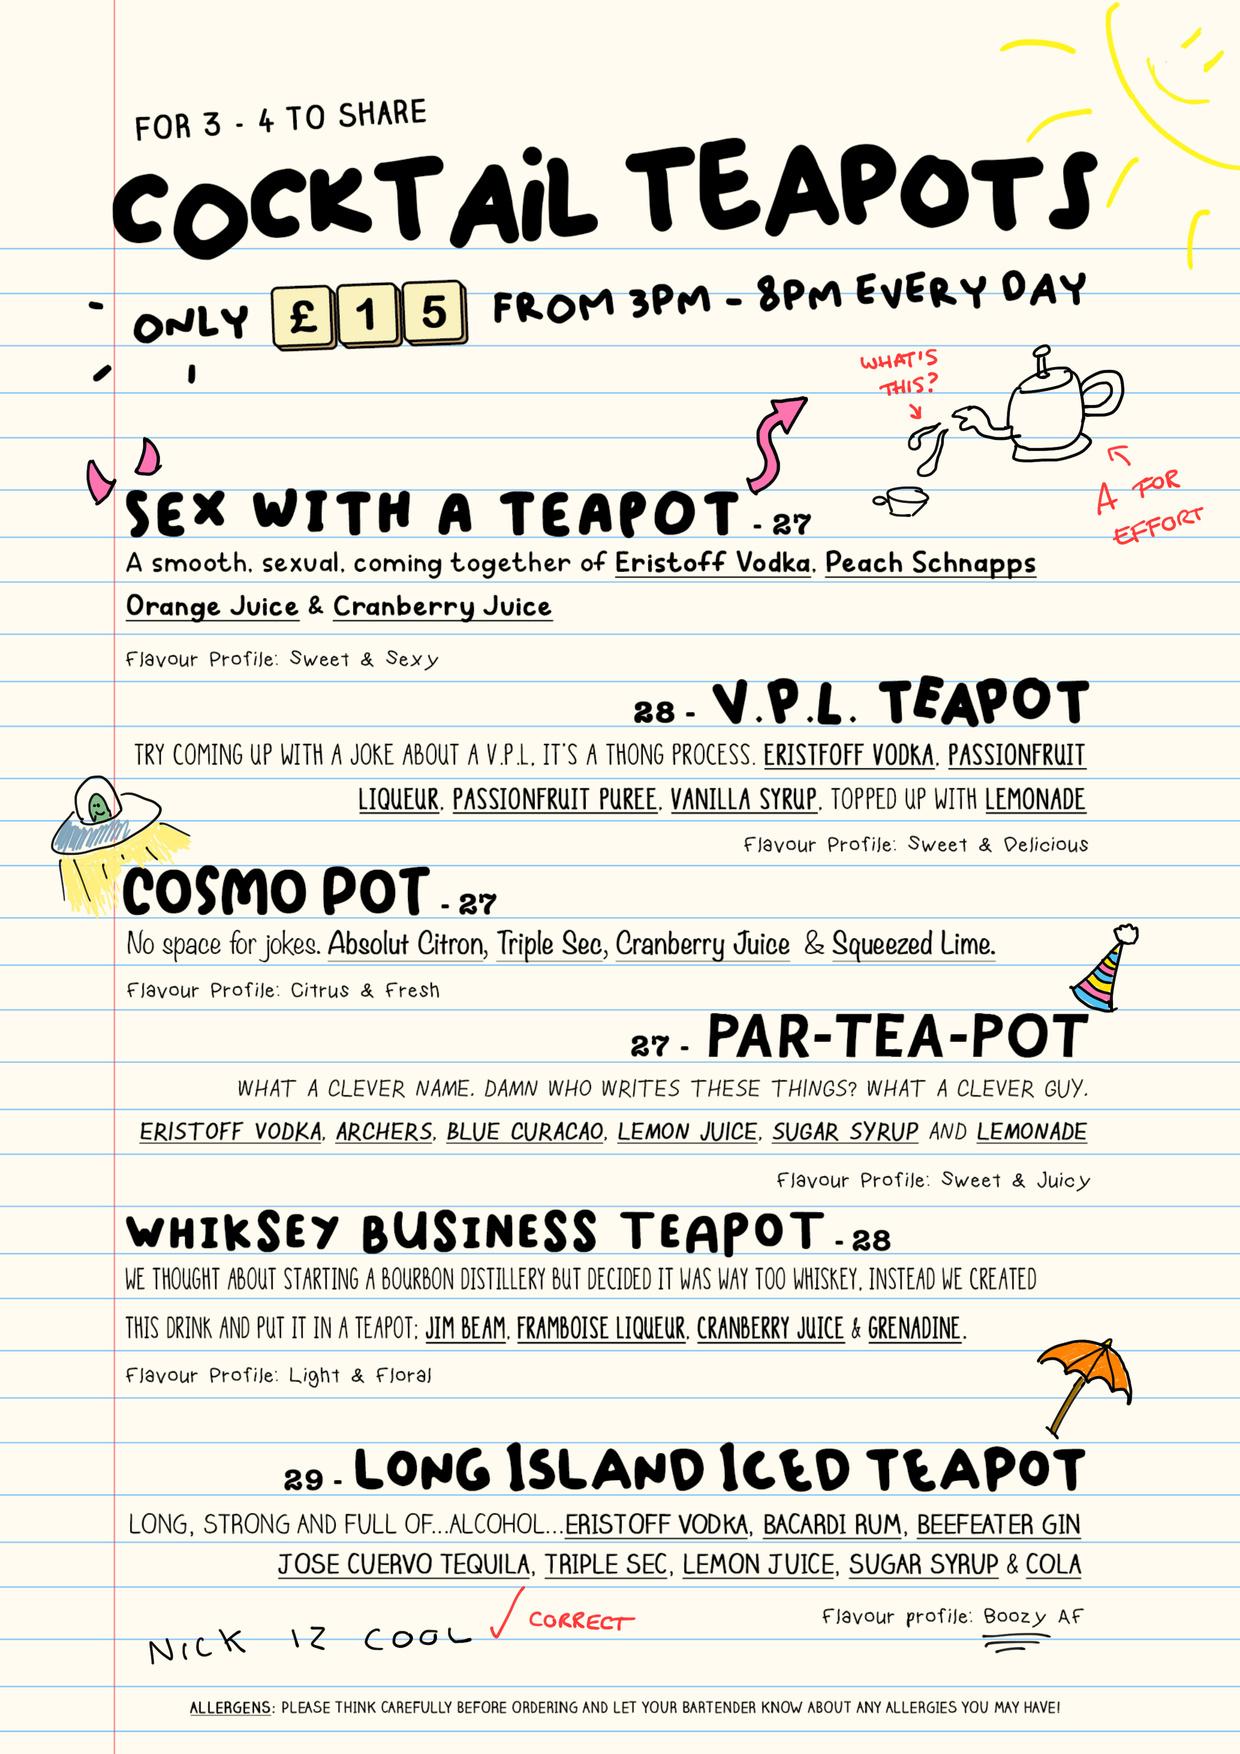 FOR 3 - 4 TO SHARE
COCKTAiL TEAPOTS
ONLY £15 FROM 3PM - 8PM EVERY DAY
WHAT'S
THIS?
A FOR
EFFORT
SEX WITH A TEAPOT - 27
A smooth, sexual, coming together of Eristoff Vodka, Peach Schnapps
Orange Juice & Cranberry Juice
Flavour Profile: Sweet & Sexy
28 - V.P.L. TEAPOT
TRY COMING UP WITH A JOKE ABOUT A V.P.L, IT'S A THONG PROCESS. ERISTFOFF VODKA, PASSIONFRUIT
LIQUEUR, PASSIONFRUIT PUREE, VANILLA SYRUP, TOPPED UP WITH LEMONADE
Flavour Profile: Sweet & Delicious
COSMO POT - 27
No space for jokes. Absolut Citron, Triple Sec, Cranberry Juice & Squeezed Lime.
Flavour Profile: Citrus & Fresh
27 - PAR-TEA-POT
WHAT A CLEVER NAME. DAMN WHO WRITES THESE THINGS? WHAT A CLEVER GUY.
ERISTOFF VODKA, ARCHERS, BLUE CURACAO, LEMON JUICE, SUGAR SYRUP AND LEMONADE
Flavour Profile: Sweet & Juicy
WHIKSEY BUSINESS TEAPOT - 28
WE THOUGHT ABOUT STARTING A BOURBON DISTILLERY BUT DECIDED IT WAS WAY TOO WHISKEY, INSTEAD WE CREATED
THIS DRINK AND PUT IT IN A TEAPOT; JIM BEAM, FRAMBOISE LIQUEUR, CRANBERRY JUICE & GRENADINE.
Flavour Profile: Light & Floral
29 - LONG ISLAND ICED TEAPOT
LONG, STRONG AND FULL OF...ALCOHOL...ERISTOFF VODKA, BACARDI RUM, BEEFEATER GIN
JOSE CUERVO TEQUILA, TRIPLE SEC, LEMON JUICE, SUGAR SYRUP & COLA
Flavour profile: Boozy AF
NICK IZ COOL ✓ CORRECT
ALLERGENS: PLEASE THINK CAREFULLY BEFORE ORDERING AND LET YOUR BARTENDER KNOW ABOUT ANY ALLERGIES YOU MAY HAVE!